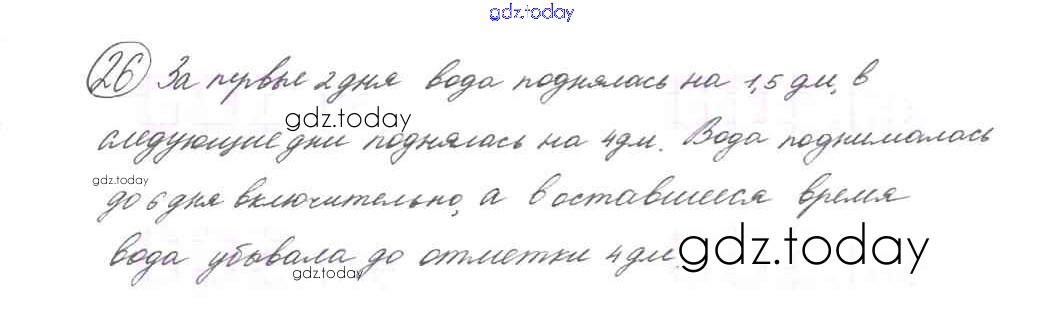 gdz.today
26 За первые 2 дня вода поднялась на 1,5 дм, в
gdz.today
следующие дни поднялась на 4 дм. Вода поднималась
gdz.today
до 6 дня включительно, а в оставшееся время
gdz.today
вода убывала до отметки 4 дм.
gdz.today